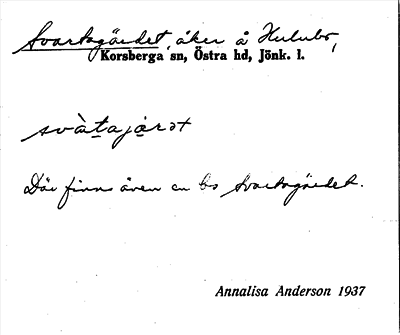 Svartagärdet, åker å Hulubo,
Korsberga sn, Östra hd, Jönk. l.
svàtajärət
Där finns även en bs Svartagärdet.
Annalisa Anderson 1937